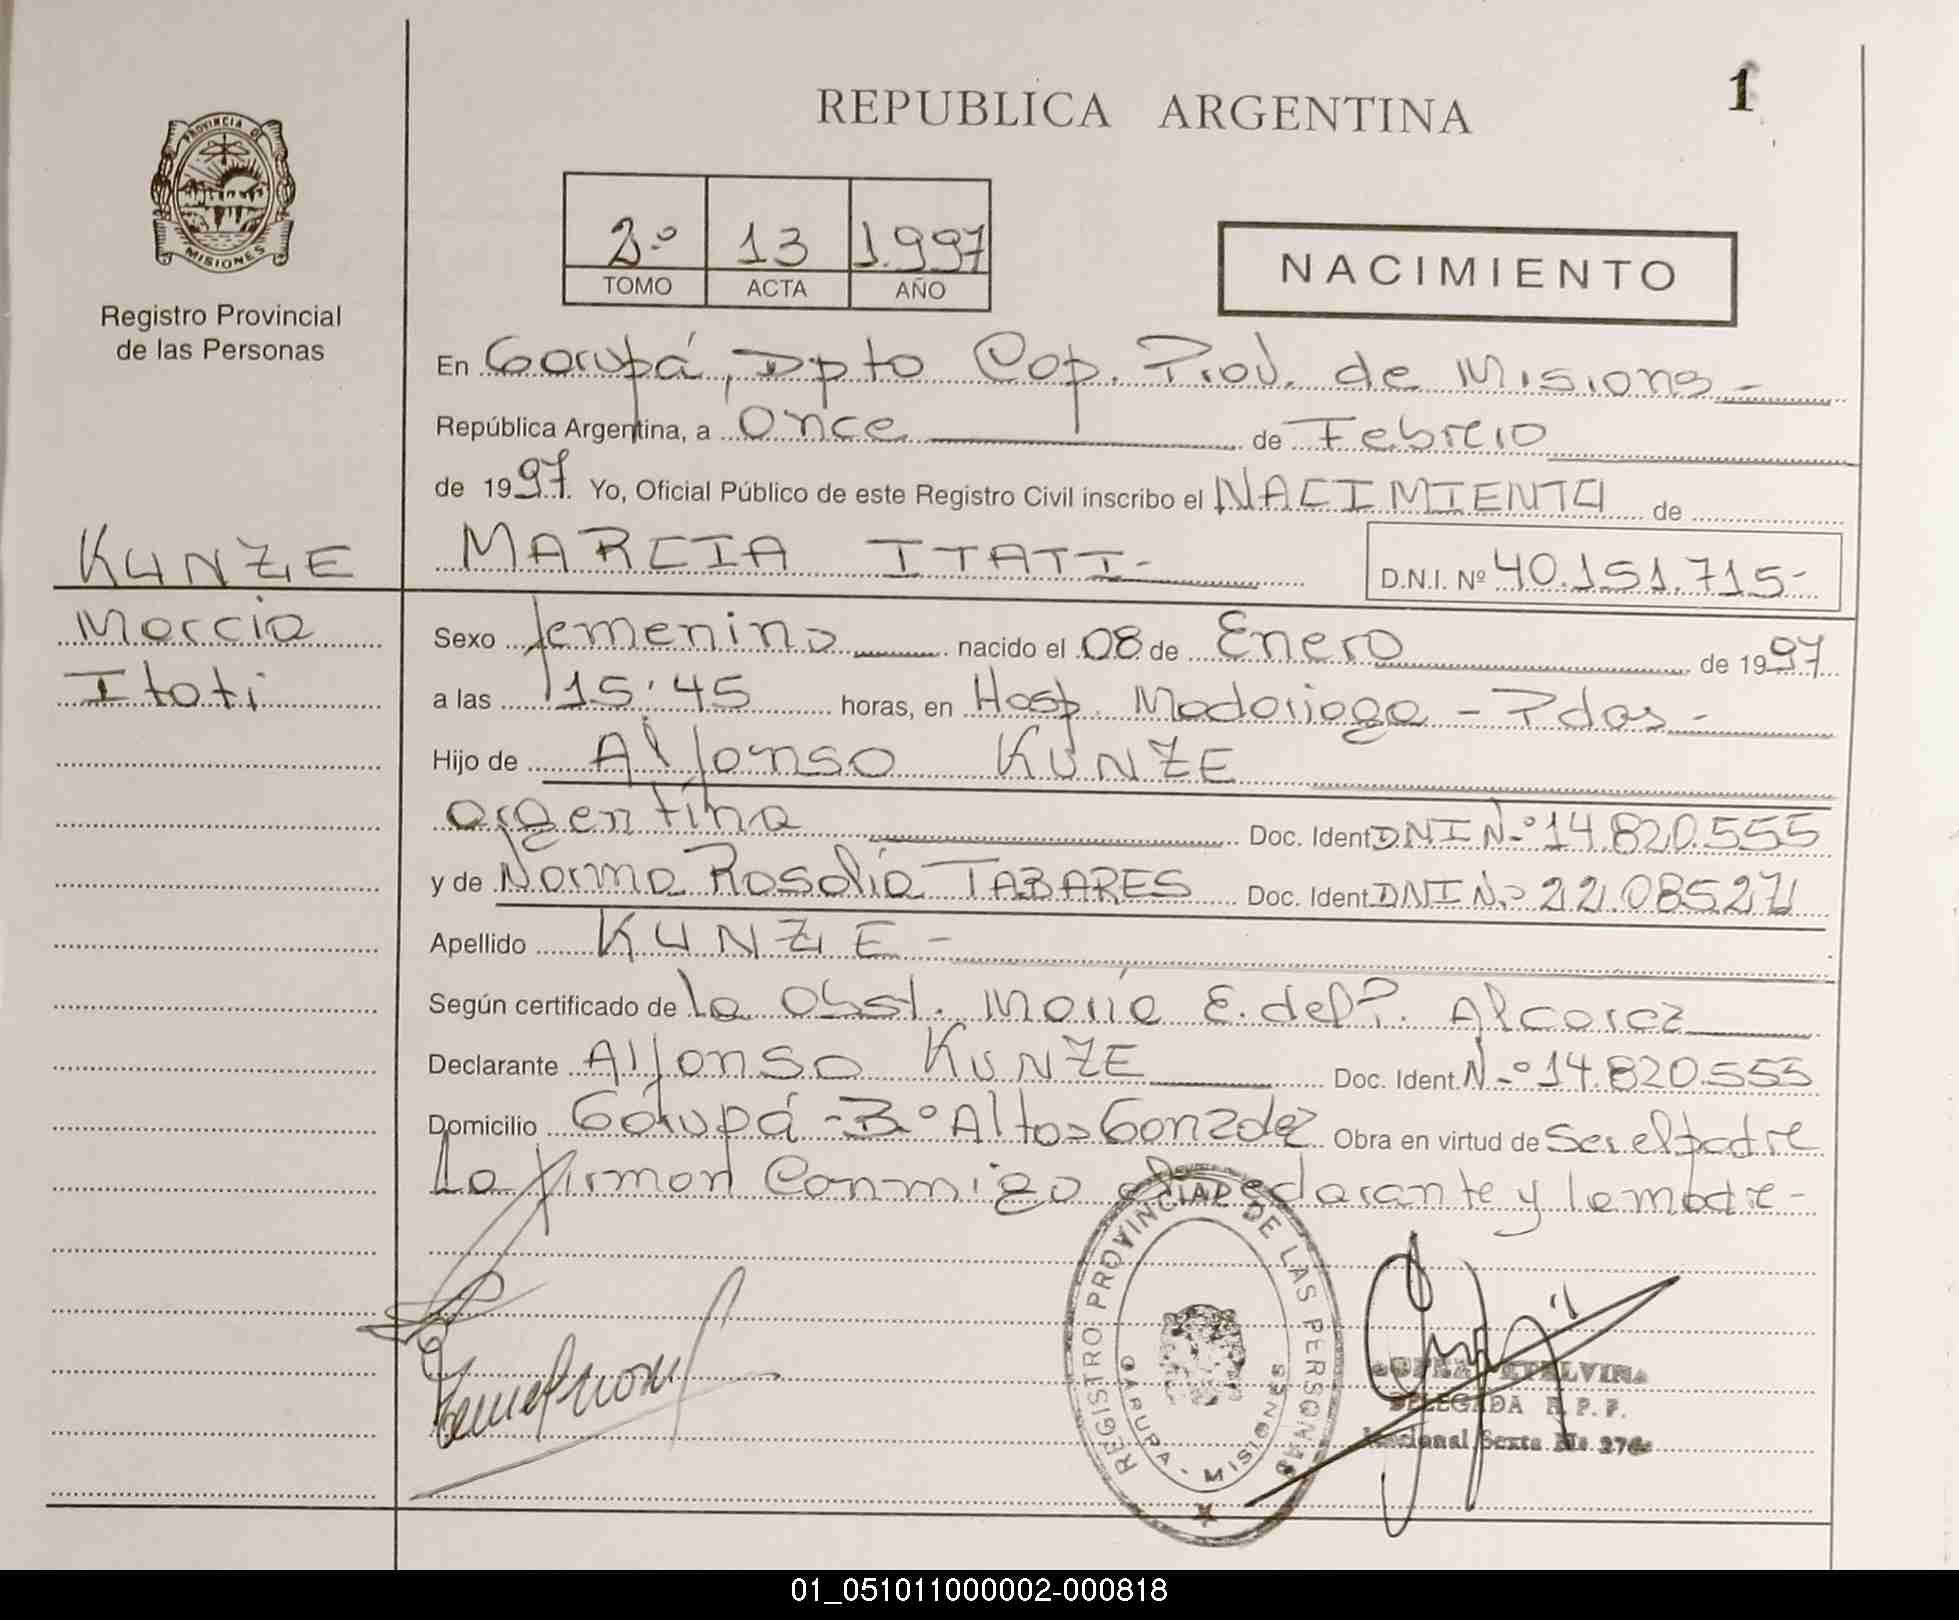 REPUBLICA ARGENTINA
1
PROVINCIA DE
MISIONES
Registro Provincial
de las Personas
2.º 13 1.997
TOMO ACTA AÑO
NACIMIENTO
En Garupá, Dpto Cap. Prov. de Misiones-
República Argentina, a Once de Febrero
de 1997. Yo, Oficial Público de este Registro Civil inscribo el NACIMIENTO de
KUNZE MARCIA ITATI- D.N.I. Nº 40.151.715-
Marcia Sexo femenino nacido el 08 de Enero de 1997
Itati a las 15:45 horas, en Hosp. Madariaga - Pdas-
Hijo de Alfonso KUNZE
argentina Doc. Ident. DNI N-º 14.820.555
y de Norma Rosalia TABARES Doc. Ident. DNI N.º 22.085.271
Apellido KUNZE-
Según certificado de la Obst. María E. del P. Alcaraz
Declarante Alfonso KUNZE Doc. Ident. N-º 14.820.555
Domicilio Garupá - B.º Altos Gonzalez Obra en virtud de Ser el padre
La firman Conmigo el declarante y la madre-
REGISTRO PROVINCIAL DE LAS PERSONAS
GARUPA - MISIONES
ETELVINA
DELEGADA R. P. P.
Seccional Sexta Nº 276
01_051011000002-000818